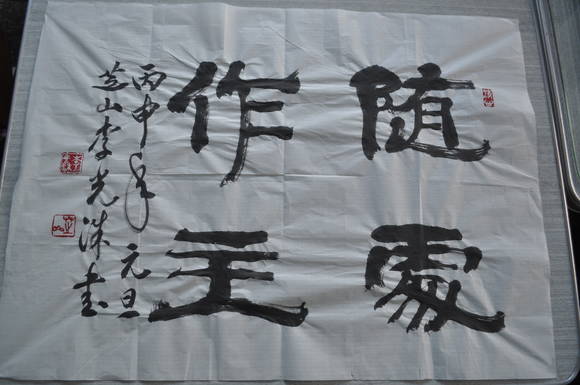 随處
作主
丙申年元旦
芝山李光洙書